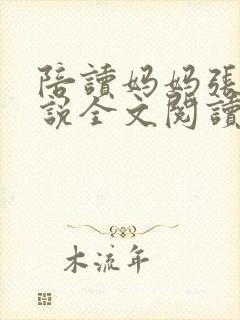 陪讀妈妈張
說全文閱讀
木流年